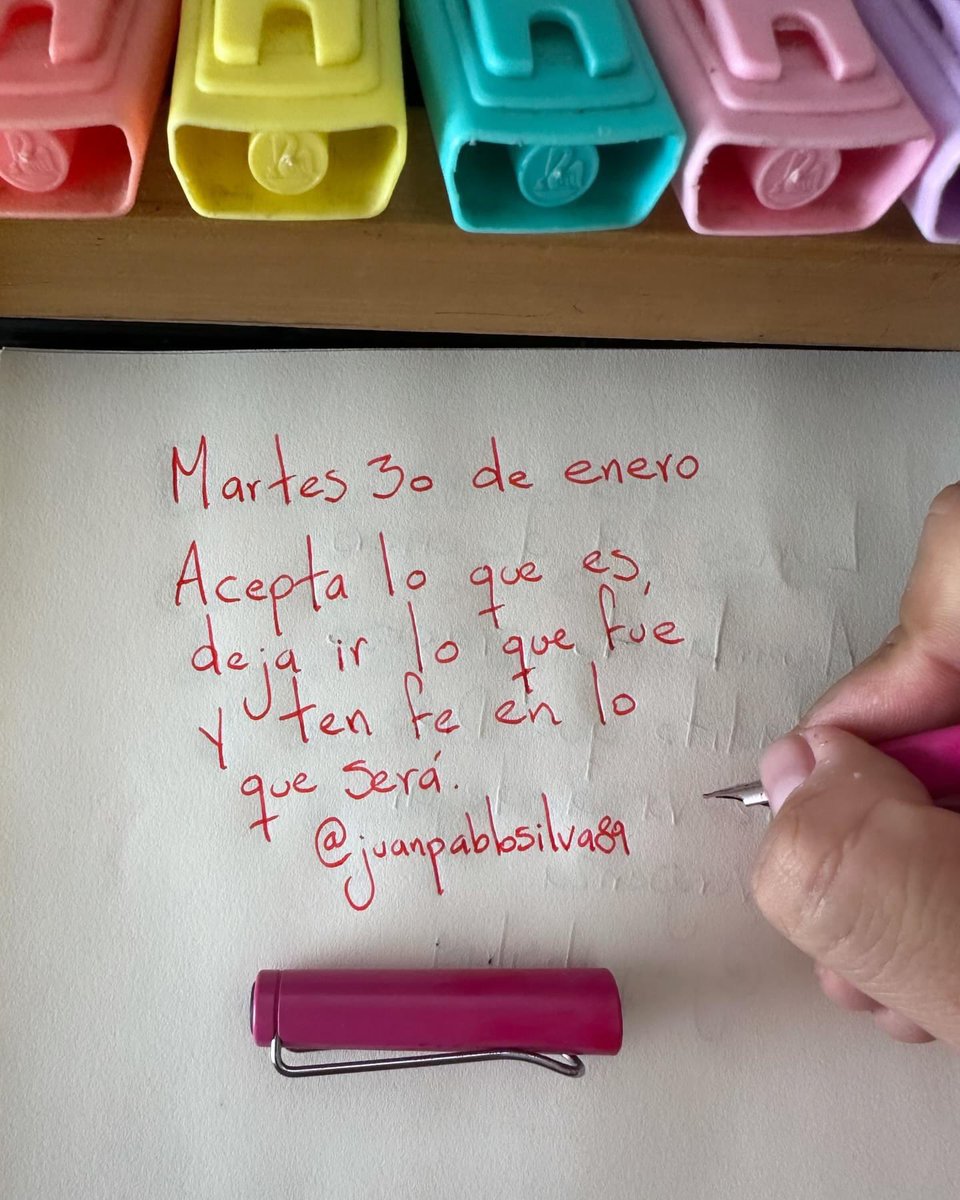 Martes 30 de enero
Acepta lo que es,
deja ir lo que fue
y ten fe en lo
que será.
@juanpablosilva89